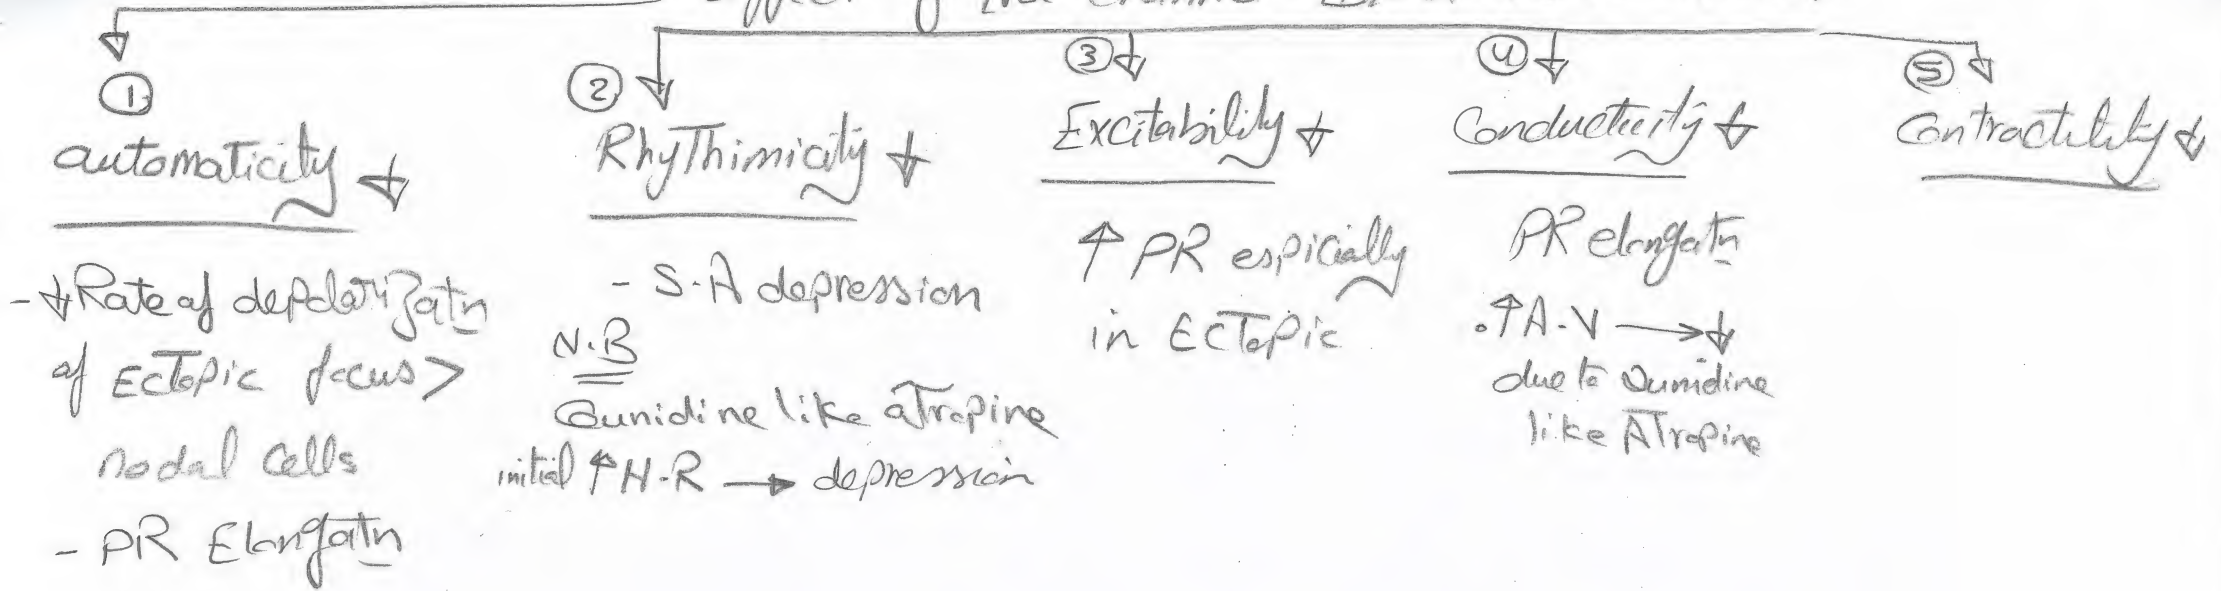 ①
automaticity ↓
- ↓ Rate of depolarizatn
of Ectopic focus >
nodal cells
- PR Elongatn
②
RhyThimicity ↓
- S.A depression
N.B
Qunidine like aTropine
initial ↑ H.R → depression
③
Excitability ↓
↑ PR espicially
in ECTopic
④
Conductivity ↓
PR elongatn
. ↑ A.V → ↓
due to Qunidine
like ATropine
⑤
Contractility ↓